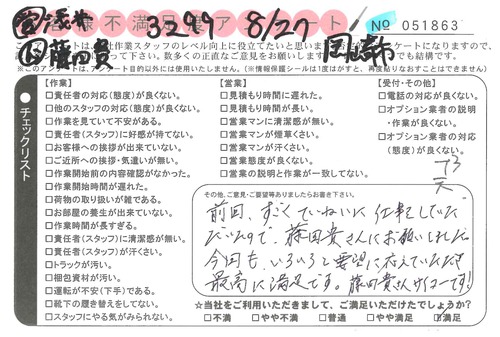 営 浅井
作 藤田貴
3299 8/27
岡崎市
お客様不満足度アンケート
No 051863
※このアンケートは、アンケート目的以外には使用いたしません。(情報保護シールは1度はがすと、再度貼りなおすことはできません)
チェックリスト
【作業】
□責任者の対応(態度)が良くない。
□他のスタッフの対応(態度)が良くない。
□作業を見ていて不安がある。
□責任者(スタッフ)に好感が持てない。
□お客様への挨拶が出来ていない。
□ご近所への挨拶・気遣いが無い。
□作業開始前の内容確認がなかった。
□作業開始時間が遅れた。
□荷物の取り扱いが雑である。
□お部屋の養生が出来ていない。
□作業時間が長すぎる。
□責任者(スタッフ)に清潔感が無い。
□責任者(スタッフ)が汗くさい。
□トラックが汚い。
□梱包資材が汚い。
□運転が不安(下手)である。
□靴下の履き替えをしてない。
□スタッフにやる気がみられない。
【営業】
□見積もり時間に遅れた。
□見積もり時間が長い。
□営業マンに清潔感が無い。
□営業マンが煙草くさい。
□営業マンが汗くさい。
□営業態度が良くない。
□営業の説明と作業が一致してない。
【受付・その他】
□電話の対応が良くない。
□オプション業者の説明
・作業が良くない。
□オプション業者の対応
(態度)が良くない。
その他、ご意見・ご要望等ありましたらお書き下さい。
前回、すごくていねいに仕事していた
だいたので、藤田貴さんにお願いしました。
今回も、いろいろと要望に応えていただき
最高に満足です。藤田貴さんサイコーです!
☆当社をご利用いただきまして、ご満足いただけたでしょうか?
□不満 □やや不満 □普通 □やや満足 □満足